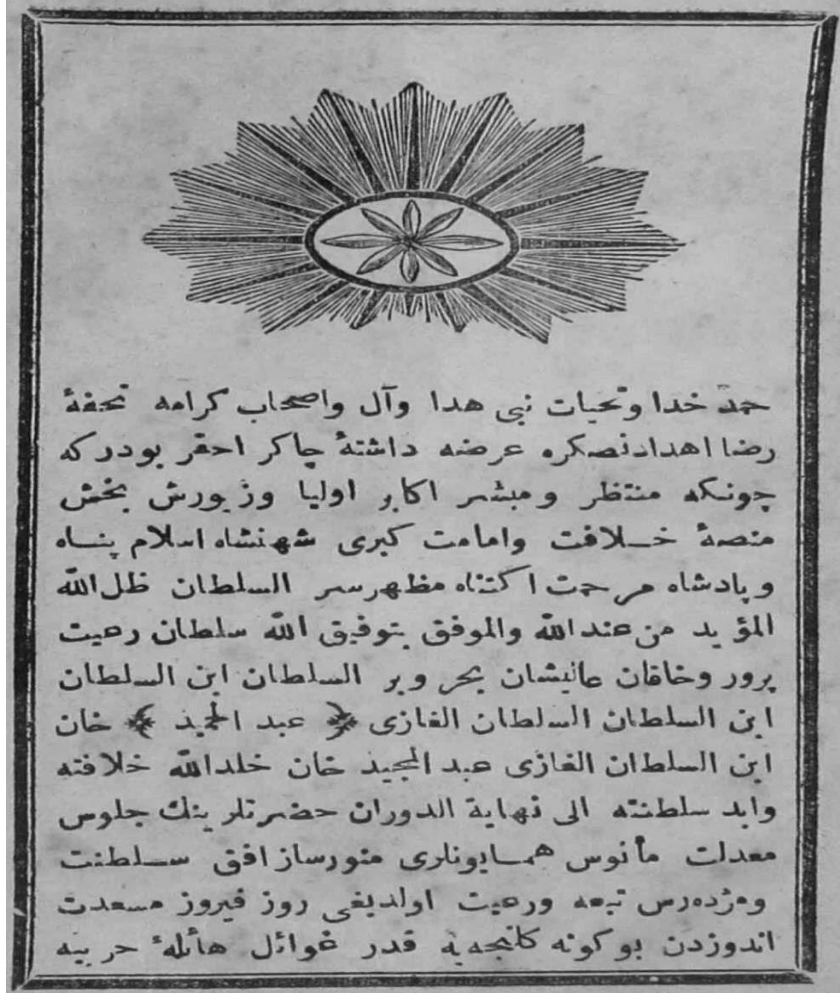 حمد خدا وتحيات نبى هدا وآل واصحاب كرامه تحفۀ
رضا اهدادنصكره عرضه داشتۀ چاكر احقر بودركه
چونكه منتظر ومبشر اكابر اوليا وزيورش بخش
منصۀ خـلافت وامامت كبرى شهنشاه اسلام پناه
وپادشاه مرحمت اكتناه مظهرسر السلطان ظل الله
المؤيد من عندالله والموفق بتوفيق الله سلطان رعيت
پرور وخاقان عاليشان بحر وبر السلطان ابن السلطان
ابن السلطان السلطان الغازى ﴿ عبد الحميد ﴾ خان
ابن السلطان الغازى عبد المجيد خان خلدالله خلافته
وابد سلطنته الى نهاية الدوران حضرتلرينك جلوس
معدلت مأنوس همـايونلرى منورساز افق سـلطنت
ومژده‌رس تبعه ورعيت اولديغى روز فيروز مسعدت
اندوزدن بوكونه كلنجه‌يه قدر غوائل هائلۀ حربيه